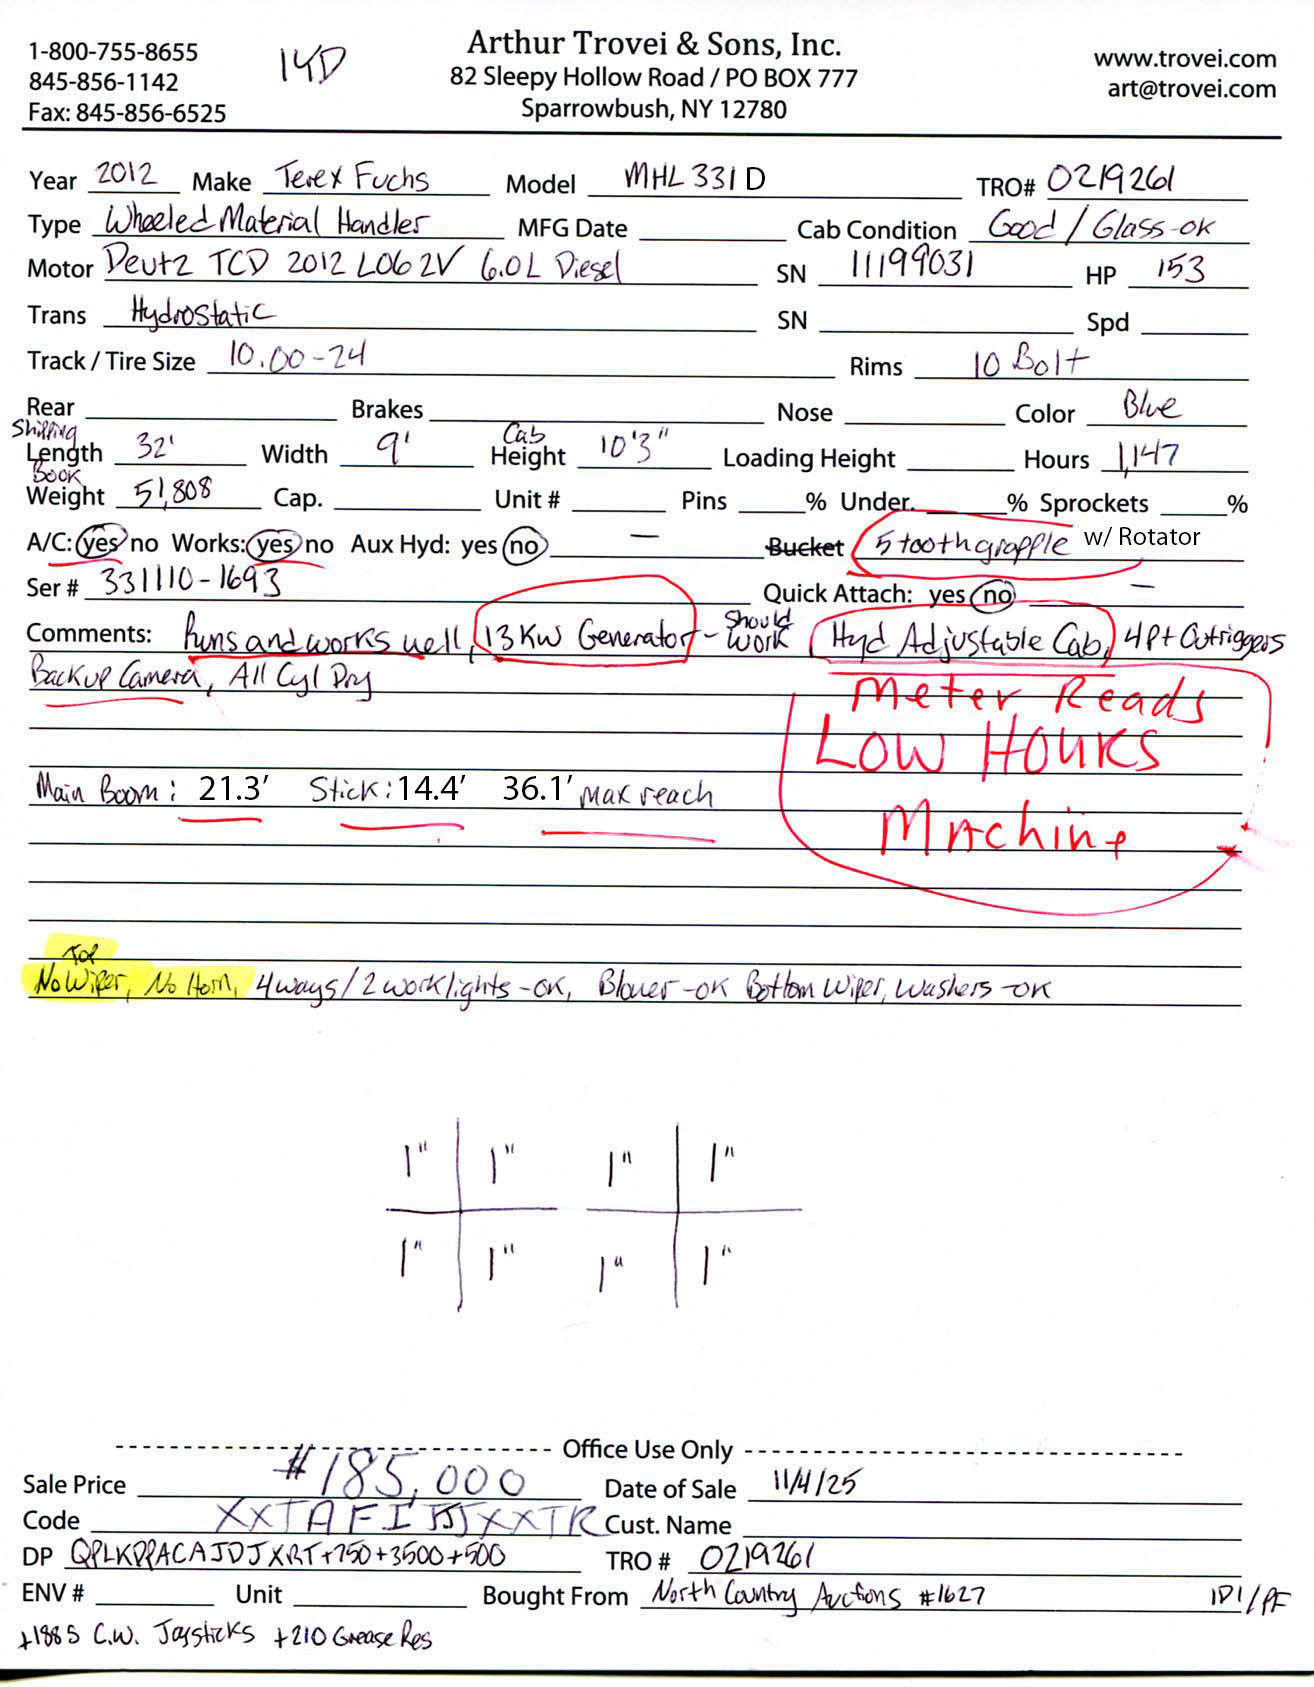 1-800-755-8655
845-856-1142
Fax: 845-856-6525
14D
Arthur Trovei & Sons, Inc.
82 Sleepy Hollow Road / PO BOX 777
Sparrowbush, NY 12780
www.trovei.com
art@trovei.com
Year 2012 Make Terex Fuchs Model MHL 331 D TRO# 0219261
Type Wheeled Material Handler MFG Date Cab Condition Good / Glass-ok
Motor Deutz TCD 2012 L06 2V 6.0L Diesel SN 11199031 HP 153
Trans Hydrostatic SN Spd
Track / Tire Size 10.00-24 Rims 10 Bolt
Rear Brakes Nose Color Blue
Shipping Length 32' Width 9' Cab Height 10'3" Loading Height Hours 1,147
Book Weight 51,808 Cap. Unit # Pins % Under. % Sprockets %
A/C: yes no Works: yes no Aux Hyd: yes no — Bucket 5 tooth grapple w/ Rotator
Ser # 331110-1693 Quick Attach: yes no —
Comments: Runs and works well, 13 KW Generator - Should work Hyd Adjustable Cab, 4 Pt Outriggers
Backup Camera, All Cyl Dry
Meter Reads
LOW HOURS
Machine
Main Boom: 21.3' Stick: 14.4' 36.1' max reach
Top
No Wiper, No Horn, 4 ways / 2 worklights -ok, Blower -ok Bottom Wiper, Washers -ok
1" 1" 1" 1"
1" 1" 1" 1"
Office Use Only
Sale Price #185,000 Date of Sale 11/4/25
Code Cust. Name
DP TRO # 0219261
ENV # Unit Bought From North Country Auctions #1627
+1885 C.W. Joysticks +210 Grease Res